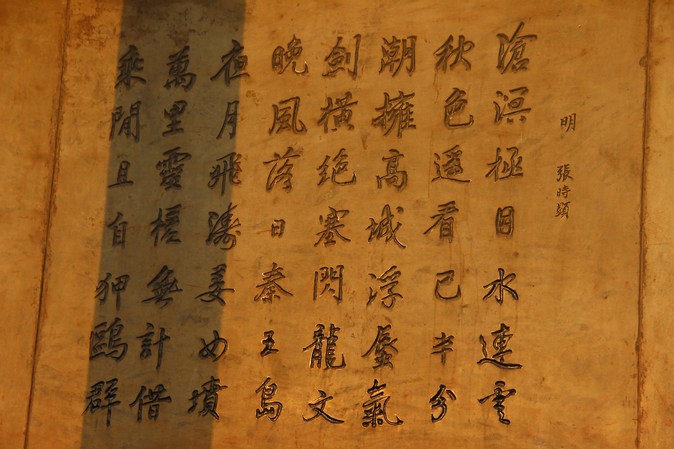 明 張時顕
滄溟極目水連雲
秋色遥看已半分
潮擁高城浮蜃氣
劍横绝塞閃龍文
晚風落日秦王島
夜月飛濤姜女墳
萬里靈槎無計借
乘閒且自狎鷗群